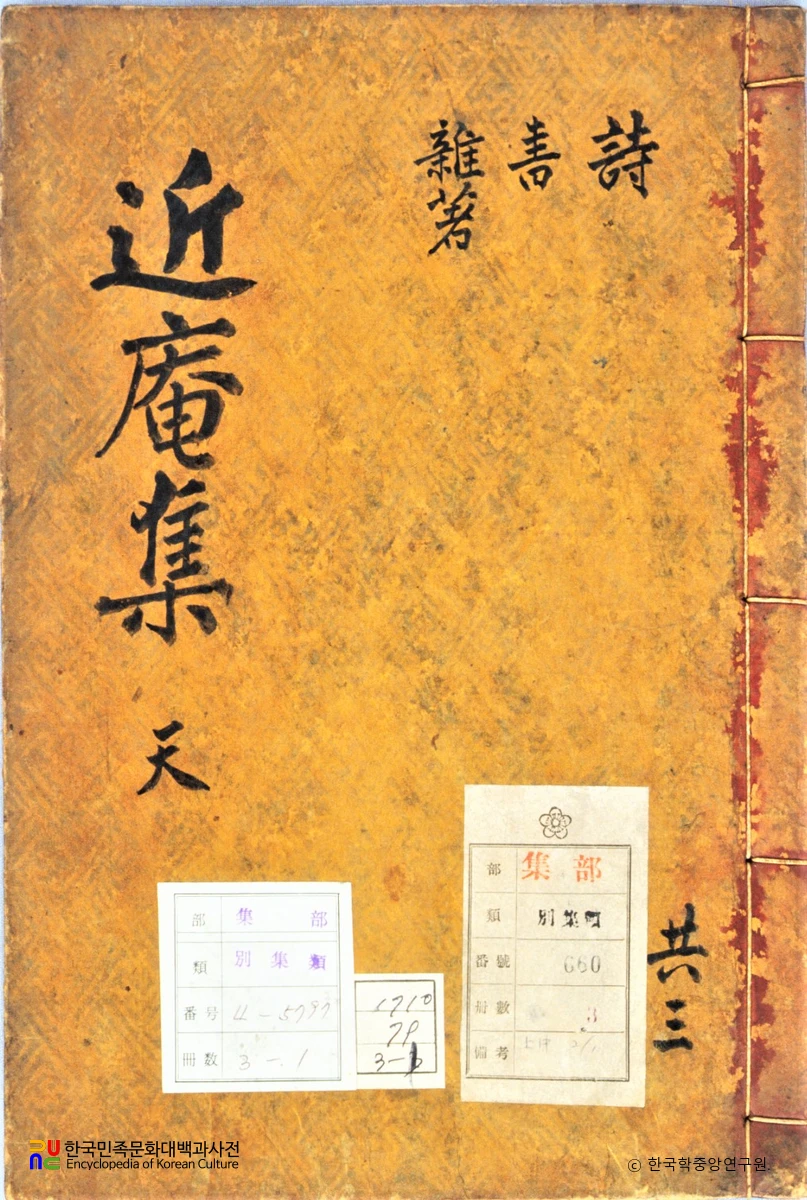 詩
書
雜著
近庵集 天
共三
部 集部
類 別集類
番号 4-5797
冊数 3-1
部 集部
類 別集類
番號 660
冊數 3
備考
한국민족문화대백과사전
Encyclopedia of Korean Culture
ⓒ 한국학중앙연구원